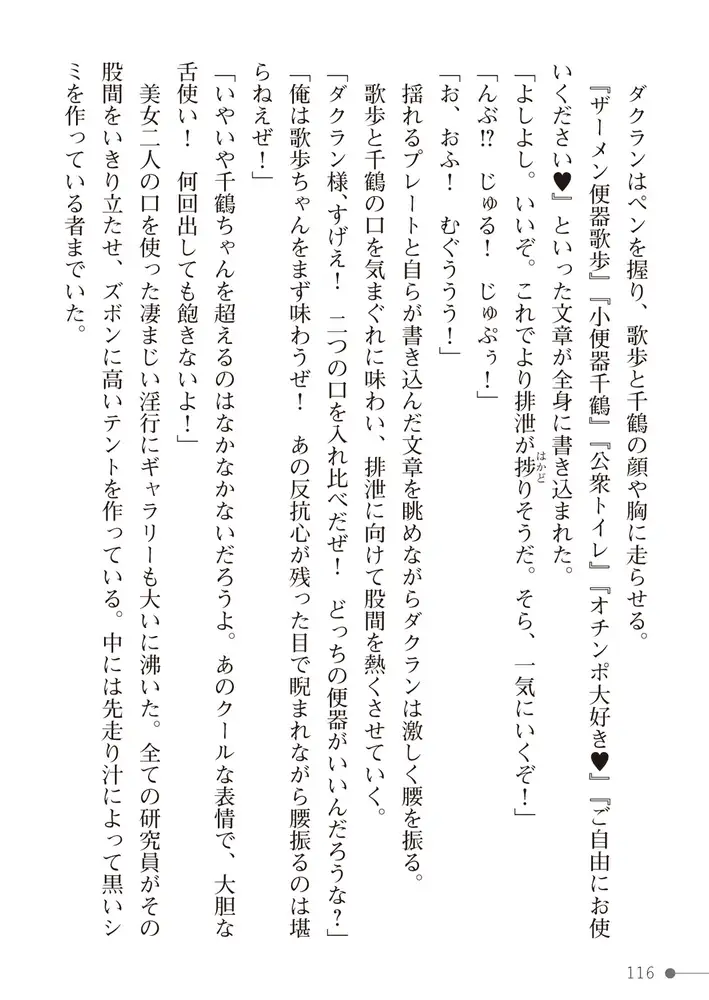 ダクランはペンを握り、歌歩と千鶴の顔や胸に走らせる。
『ザーメン便器歌歩』『小便器千鶴』『公衆トイレ』『オチンポ大好き♥』『ご自由にお使
いください♥』といった文章が全身に書き込まれた。
「よしよし。いいぞ。これでより排泄が捗りそうだ。そら、一気にいくぞ！」
はかど
「んぶ⁉　じゅる！　じゅぷぅ！」
「お、おふ！　むぐううう！」
揺れるプレートと自らが書き込んだ文章を眺めながらダクランは激しく腰を振る。
歌歩と千鶴の口を気まぐれに味わい、排泄に向けて股間を熱くさせていく。
「ダクラン様、すげえ！　二つの口を入れ比べだぜ！　どっちの便器がいいんだろうな？」
「俺は歌歩ちゃんをまず味わうぜ！　あの反抗心が残った目で睨まれながら腰振るのは堪
らねえぜ！」
「いやいや千鶴ちゃんを超えるのはなかなかないだろうよ。あのクールな表情で、大胆な
舌使い！　何回出しても飽きないよ！」
美女二人の口を使った凄まじい淫行にギャラリーも大いに沸いた。全ての研究員がその
股間をいきり立たせ、ズボンに高いテントを作っている。中には先走り汁によって黒いシ
ミを作っている者までいた。
116